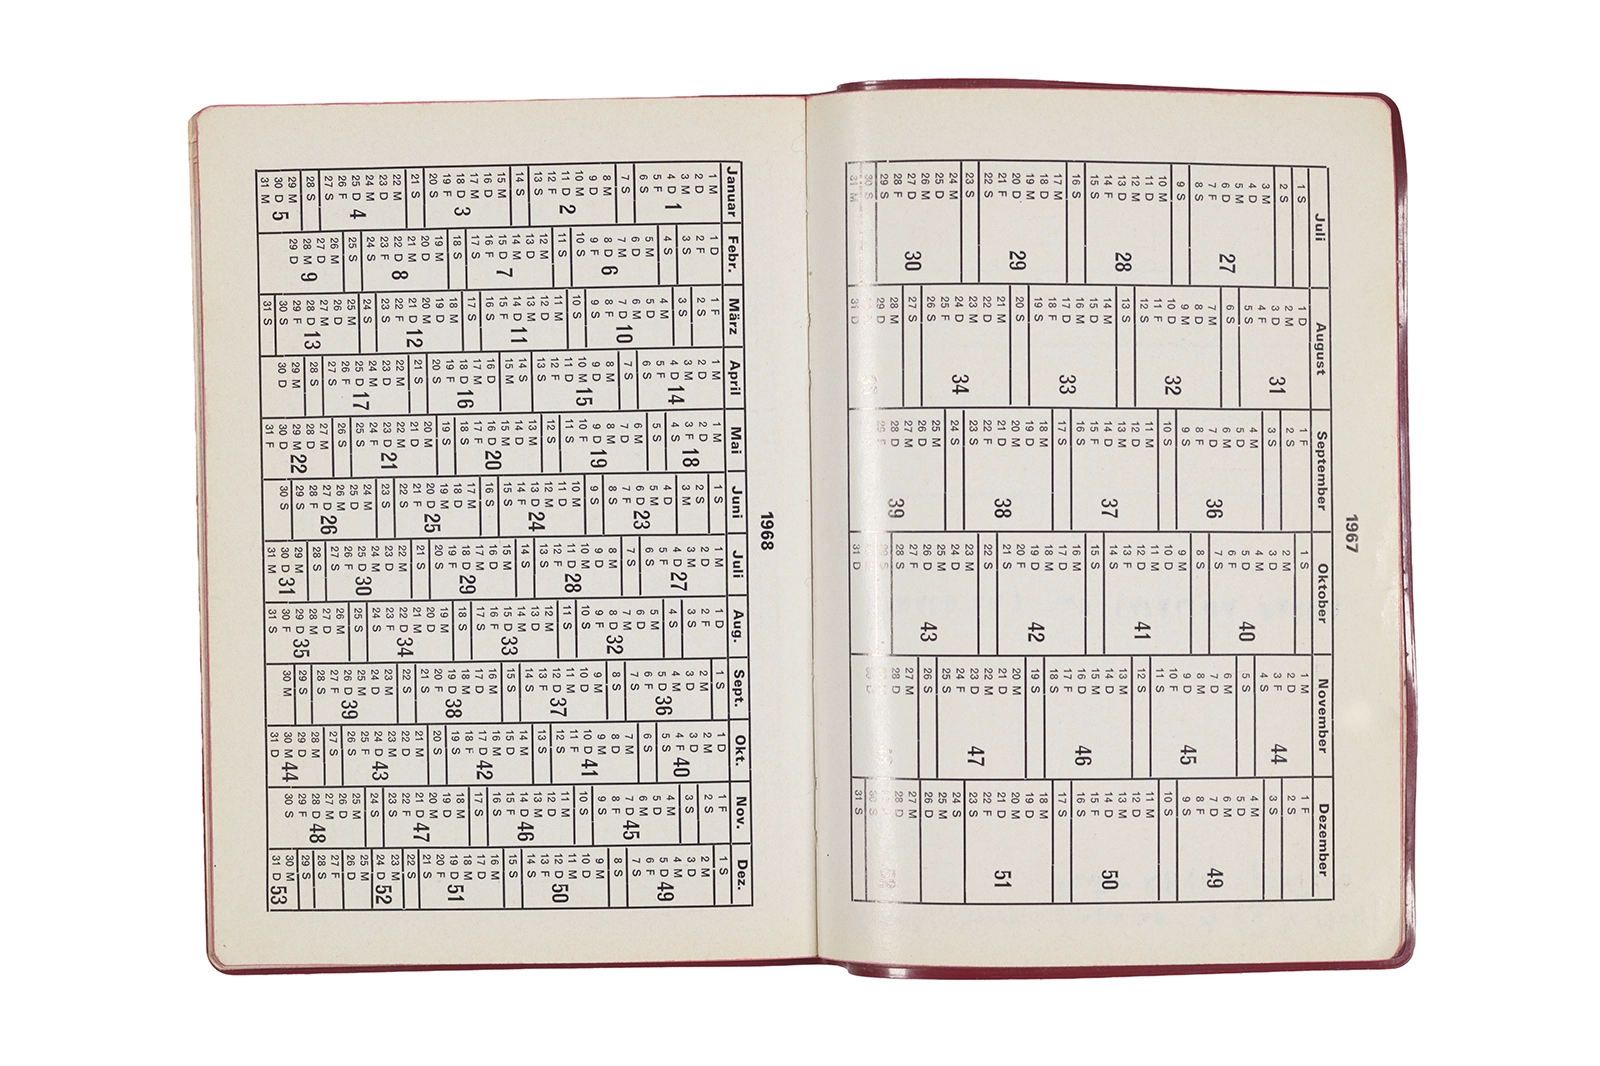 1967
Juli August September Oktober November Dezember
1 S 1 D 1 F 1 S 1 M 1 F
2 S 2 M 2 S 2 M 2 D 2 S
3 M 3 D 31 3 S 3 D 3 F 44 3 S
4 D 4 F 4 M 4 M 4 S 4 M
5 M 5 S 5 D 5 D 40 5 S 5 D
6 D 27 6 S 6 M 6 F 6 M 6 M
7 F 7 M 7 D 36 7 S 7 D 7 D 49
8 S 8 D 8 F 8 S 8 M 8 F
9 S 9 M 9 S 9 M 9 D 45 9 S
10 M 10 D 32 10 S 10 D 10 F 10 S
11 D 11 F 11 M 11 M 11 S 11 M
12 M 12 S 12 D 12 D 41 12 S 12 D
13 D 28 13 S 13 M 13 F 13 M 13 M
14 F 14 M 14 D 37 14 S 14 D 14 D 50
15 S 15 D 15 F 15 S 15 M 15 F
16 S 16 M 16 S 16 M 16 D 46 16 S
17 M 17 D 33 17 S 17 D 17 F 17 S
18 D 18 F 18 M 18 M 18 S 18 M
19 M 19 S 19 D 19 D 42 19 S 19 D
20 D 29 20 S 20 M 20 F 20 M 20 M
21 F 21 M 21 D 38 21 S 21 D 21 D 51
22 S 22 D 22 F 22 S 22 M 22 F
23 S 23 M 23 S 23 M 23 D 47 23 S
24 M 24 D 34 24 S 24 D 24 F 24 S
25 D 25 F 25 M 25 M 25 S 25 M
26 M 26 S 26 D 26 D 43 26 S 26 D
27 D 30 27 S 27 M 27 F 27 M 27 M
28 F 28 M 28 D 39 28 S 28 D 28 D 52
29 S 29 D 29 F 29 S
30 S 30 S 30 D 30 S
31 M 31 D 31 D 31 S
1968
Januar Febr. März April Mai Juni Juli Aug. Sept. Okt. Nov. Dez.
1 M 1 D 1 F 1 M 1 M 1 S 1 M 1 D 1 S 1 D 1 F 1 S
2 D 2 F 2 S 2 D 2 D 2 S 2 D 2 F 2 M 2 M 2 S 2 M
3 M 3 S 3 S 3 M 3 F 18 3 M 3 M 3 S 3 D 3 D 3 S 3 D
4 D 1 4 S 4 M 4 D 14 4 S 4 D 4 D 27 4 S 4 M 4 F 40 4 M 4 M
5 F 5 M 5 D 5 F 5 S 5 M 5 F 5 M 5 D 36 5 S 5 D 5 D 49
6 S 6 D 6 M 6 S 6 M 6 D 23 6 S 6 D 6 F 6 S 6 M 6 F
7 S 7 M 7 D 10 7 S 7 D 7 F 7 S 7 M 7 S 7 M 7 D 45 7 S
8 M 8 D 6 8 F 8 M 8 M 8 S 8 M 8 D 32 8 S 8 D 8 F 8 S
9 D 9 F 9 S 9 D 9 D 19 9 S 9 D 9 F 9 M 9 M 9 S 9 M
10 M 10 S 10 S 10 M 15 10 F 10 M 10 M 10 S 10 D 10 D 41 10 S 10 D
11 D 2 11 S 11 M 11 D 11 S 11 D 11 D 28 11 S 11 M 11 F 11 M 11 M
12 F 12 M 12 D 12 F 12 S 12 M 12 F 12 M 12 D 37 12 S 12 D 12 D 50
13 S 13 D 13 M 13 S 13 M 13 D 24 13 S 13 D 13 F 13 S 13 M 13 F
14 S 14 M 14 D 11 14 S 14 D 14 F 14 S 14 M 14 S 14 M 14 D 46 14 S
15 M 15 D 7 15 F 15 M 15 M 15 S 15 M 15 D 33 15 S 15 D 15 F 15 S
16 D 16 F 16 S 16 D 16 D 20 16 S 16 D 16 F 16 M 16 M 16 S 16 M
17 M 17 S 17 S 17 M 17 F 17 M 17 M 17 S 17 D 17 D 42 17 S 17 D
18 D 3 18 S 18 M 18 D 16 18 S 18 D 18 D 29 18 S 18 M 18 F 18 M 18 M
19 F 19 M 19 D 19 F 19 S 19 M 19 F 19 M 19 D 38 19 S 19 D 19 D 51
20 S 20 D 20 M 20 S 20 M 20 D 25 20 S 20 D 20 F 20 S 20 M 20 F
21 S 21 M 21 D 12 21 S 21 D 21 F 21 S 21 M 21 S 21 M 21 D 47 21 S
22 M 22 D 8 22 F 22 M 22 M 22 S 22 M 22 D 34 22 S 22 D 22 F 22 S
23 D 23 F 23 S 23 D 23 D 21 23 S 23 D 23 F 23 M 23 M 23 S 23 M
24 M 24 S 24 S 24 M 24 F 24 M 24 M 24 S 24 D 24 D 43 24 S 24 D 52
25 D 4 25 S 25 M 25 D 17 25 S 25 D 25 D 30 25 S 25 M 25 F 25 M 25 M
26 F 26 M 26 D 26 F 26 S 26 M 26 F 26 M 26 D 39 26 S 26 D 26 D
27 S 27 D 27 M 27 S 27 M 27 D 26 27 S 27 D 27 F 27 S 27 M 27 F
28 S 28 M 9 28 D 13 28 S 28 D 28 F 28 S 28 M 28 S 28 M 28 D 48 28 S
29 M 29 D 29 F 29 M 29 M 22 29 S 29 M 29 D 35 29 S 29 D 29 F 29 S
30 D 5 30 S 30 D 30 D 30 S 30 D 31 30 F 30 M 30 M 44 30 S 30 M
31 M 31 S 31 F 31 M 31 S 31 D 31 D 53